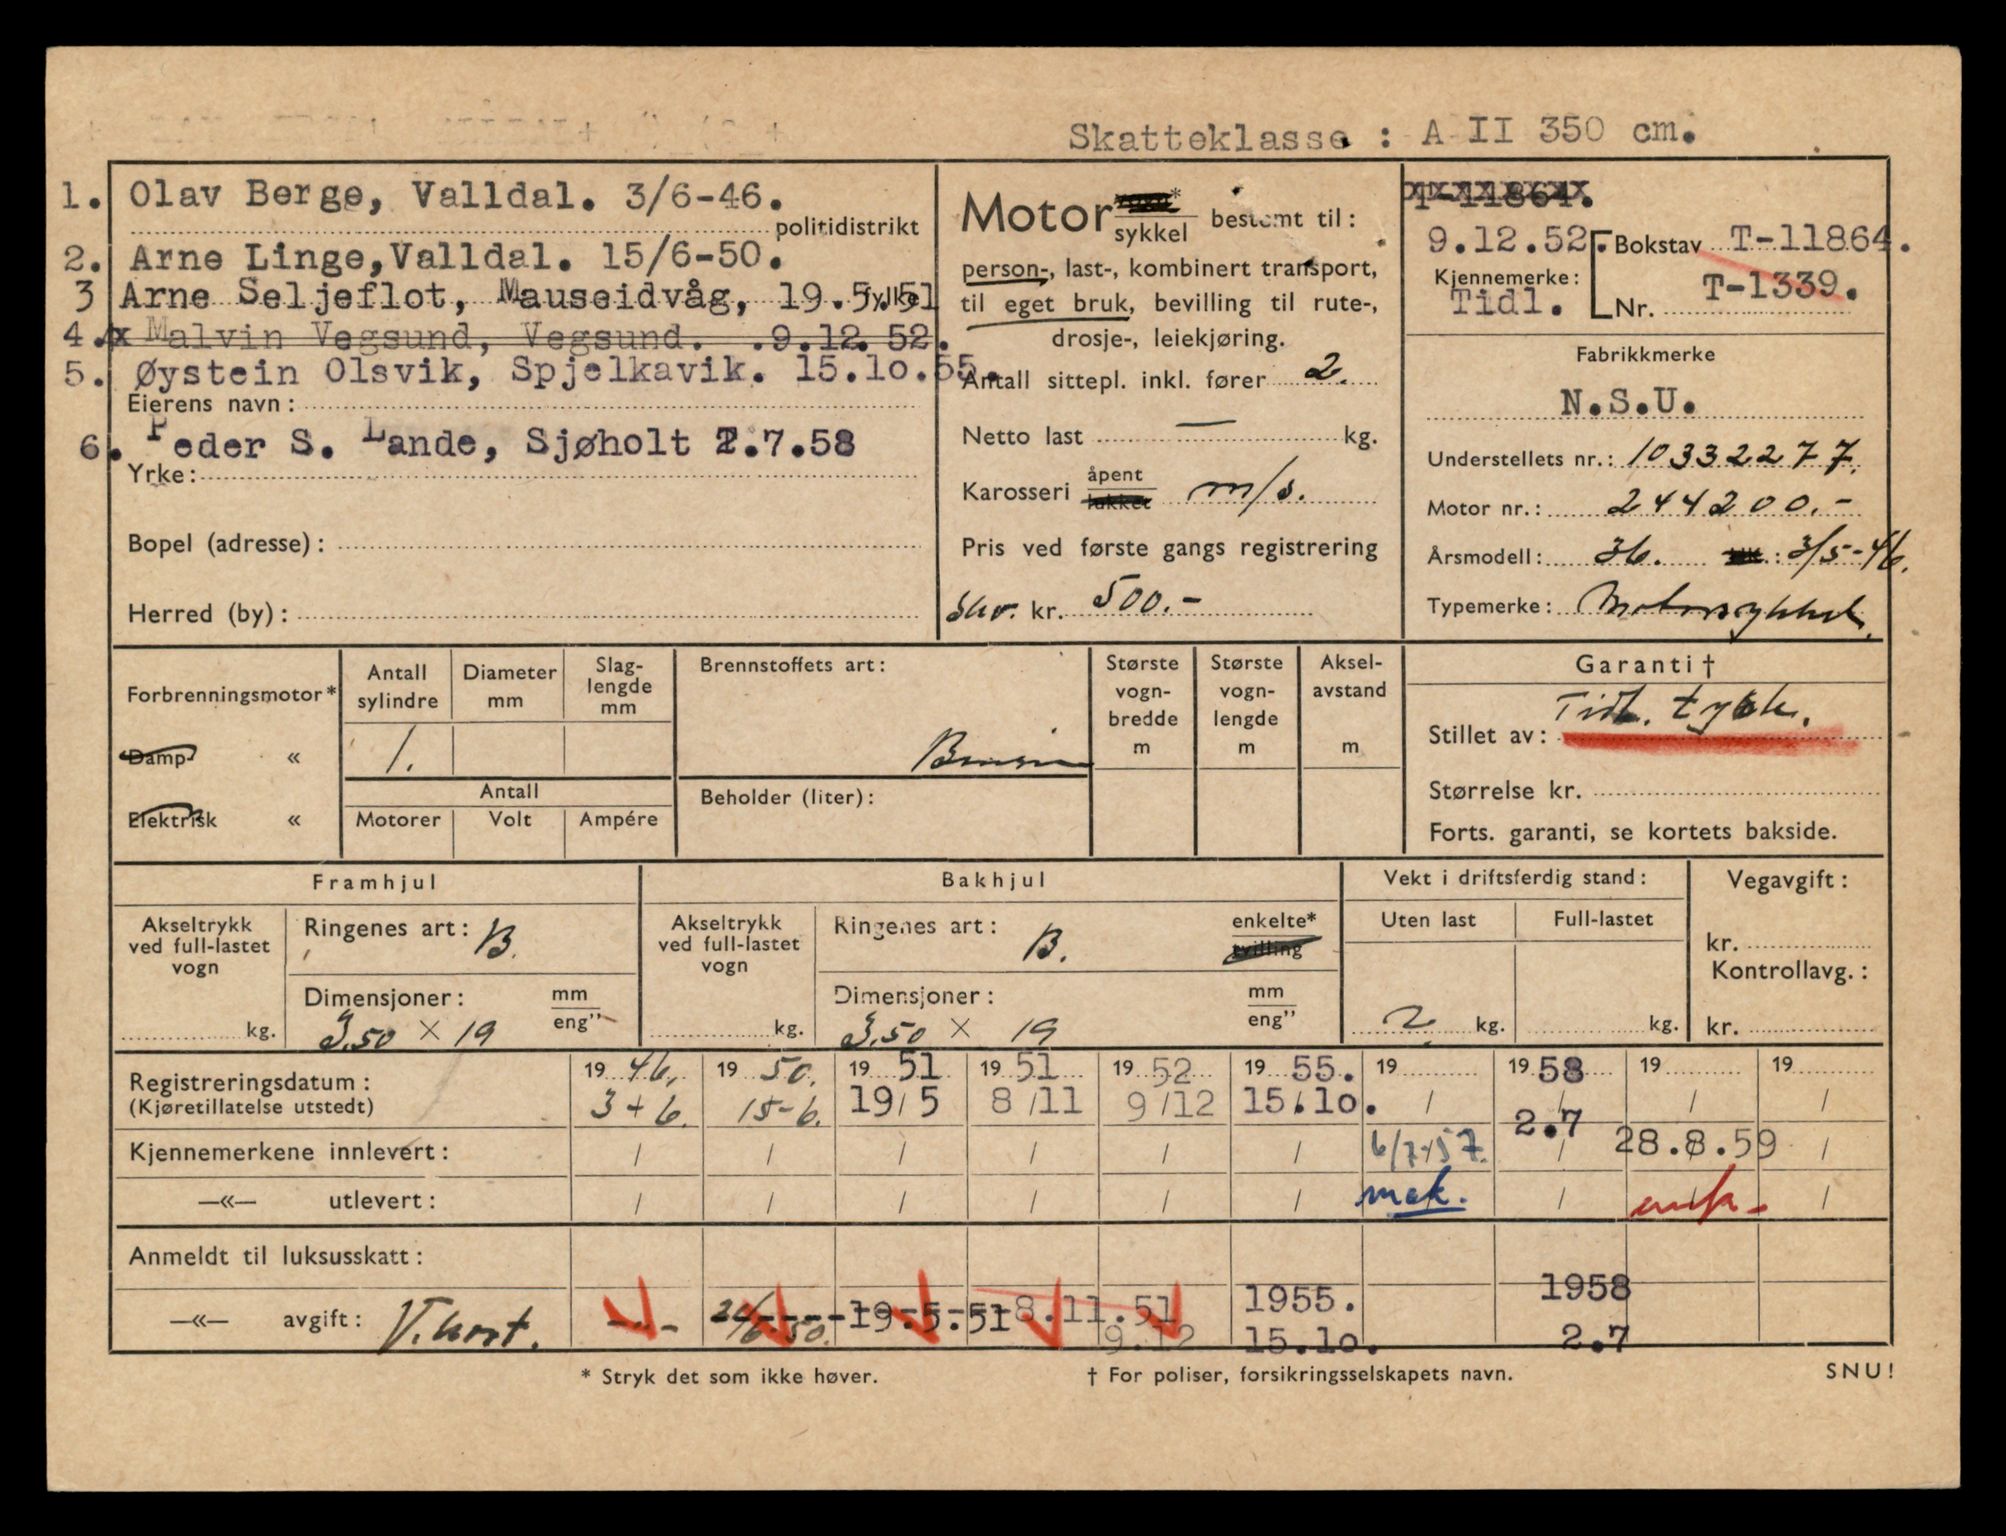 Skatteklasse : A II 350 cm.
1. Olav Berge, Valldal. 3/6-46.
politidistrikt
2. Arne Linge, Valldal. 15/6-50.
3 Arne Seljeflot, Mauseidvåg, 19.5.51
fylke
4. x Malvin Vegsund, Vegsund. .9.12.52.
5. Øystein Olsvik, Spjelkavik. 15.10.55.
Eierens navn:
6. Peder S. Lande, Sjøholt 2.7.58
Yrke:
Bopel (adresse):
Herred (by):
Motor sykkel bestemt til:
person-, last-, kombinert transport,
til eget bruk, bevilling til rute-,
drosje-, leiekjøring.
Antall sittepl. inkl. fører 2.
Netto last — kg.
Karosseri åpent lukket m/s.
Pris ved første gangs registrering
kr. 500.-
T-11864.
9.12.52. Bokstav T-11864.
Kjennemerke:
Tidl. Nr. T-1339.
Fabrikkmerke
N.S.U.
Understellets nr.: 10332277.
Motor nr.: 244200.-
Årsmodell: 36. 3/5-46.
Typemerke: Motorsykkel.
Forbrenningsmotor*
Damp «
Elektrisk «
Antall sylindre
Diameter mm
Slag-lengde mm
1.
Antall
Motorer Volt Ampére
Brennstoffets art:
Bensin
Beholder (liter):
Største vogn-bredde m
Største vogn-lengde m
Aksel-avstand m
Garanti †
Tidl. trykk.
Stillet av:
Størrelse kr.
Forts. garanti, se kortets bakside.
Framhjul
Akseltrykk ved full-lastet vogn
kg.
Ringenes art: B.
Dimensjoner: mm eng"
3.50 × 19
Bakhjul
Akseltrykk ved full-lastet vogn
kg.
Ringenes art: B. enkelte* tvilling
Dimensjoner: mm eng"
3.50 × 19
Vekt i driftsferdig stand:
Uten last Full-lastet
? kg. kg.
Vegavgift:
kr.
Kontrollavg.:
kr.
Registreringsdatum: 19 46. 19 50. 19 51 19 51 19 52 19 55. 19 19 58 19 19
(Kjøretillatelse utstedt) 3 + 6. 15-6. 19/5 8/11 9/12 15.10. / 2.7 / /
Kjennemerkene innlevert: / / / / / / 6/7-57. / 28.8.59 /
—«— utlevert: / / / / / / mek. / /
Anmeldt til luksusskatt:
—«— avgift: V.kort. --- 26/6-50. ----19.5.51 8.11.51 9.12 1955. 15.10. 1958 2.7
* Stryk det som ikke høver.
† For poliser, forsikringsselskapets navn.
SNU!